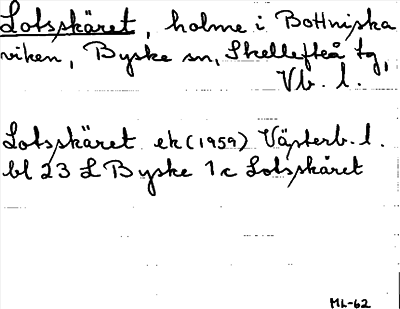 Lotsskäret, holme i Bottniska
viken, Byske sn, Skellefteå tg,
Vb. l.
Lotsskäret ek (1959) Västerb. l.
bl 23 L Byske 1c Lotsskäret
ML-62